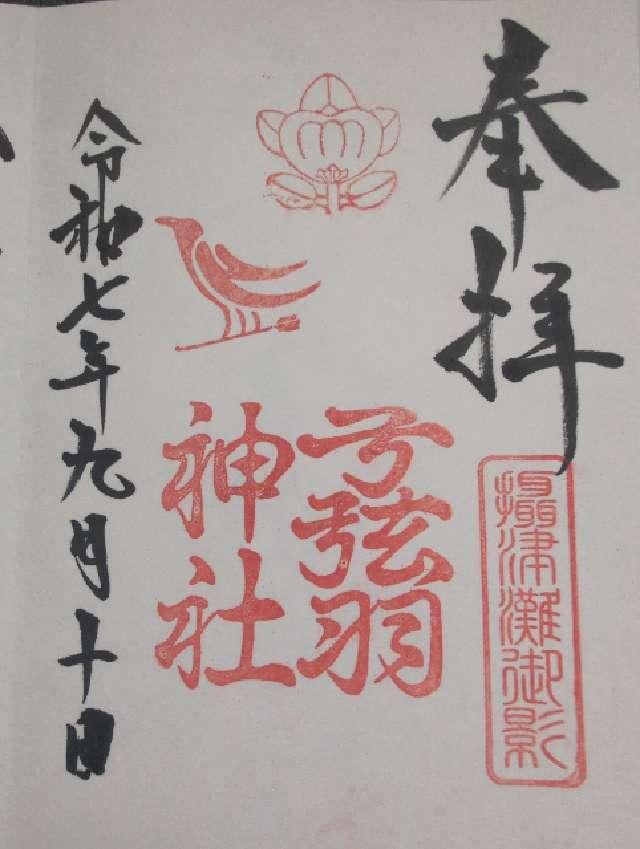 奉拝
摂津灘御影
弓弦羽
神社
令和七年九月十日